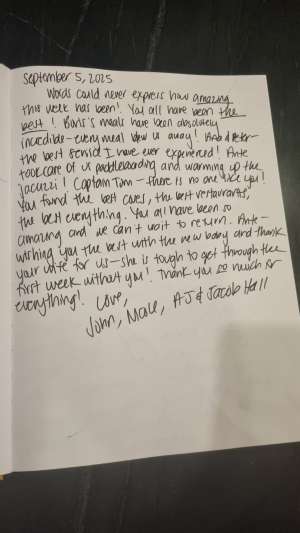 September 5, 2025
Words could never express how amazing
this week has been! You all have been the
best! Boris's meals have been absolutely
incredible - every meal blew us away! And Ante
the best service I have ever experienced! Ante
took care of us paddleboarding and warming up the
jacuzzi! Captain Tom - there is no one like you!
You found the best coves, the best restaurants,
the best everything. You all have been so
amazing and we can't wait to return. Ante -
wishing you the best with the new baby and thank
your wife for us - she is tough to get through the
first week without you! Thank you so much for
everything!. Love,
John, AJ & Jacob Hall